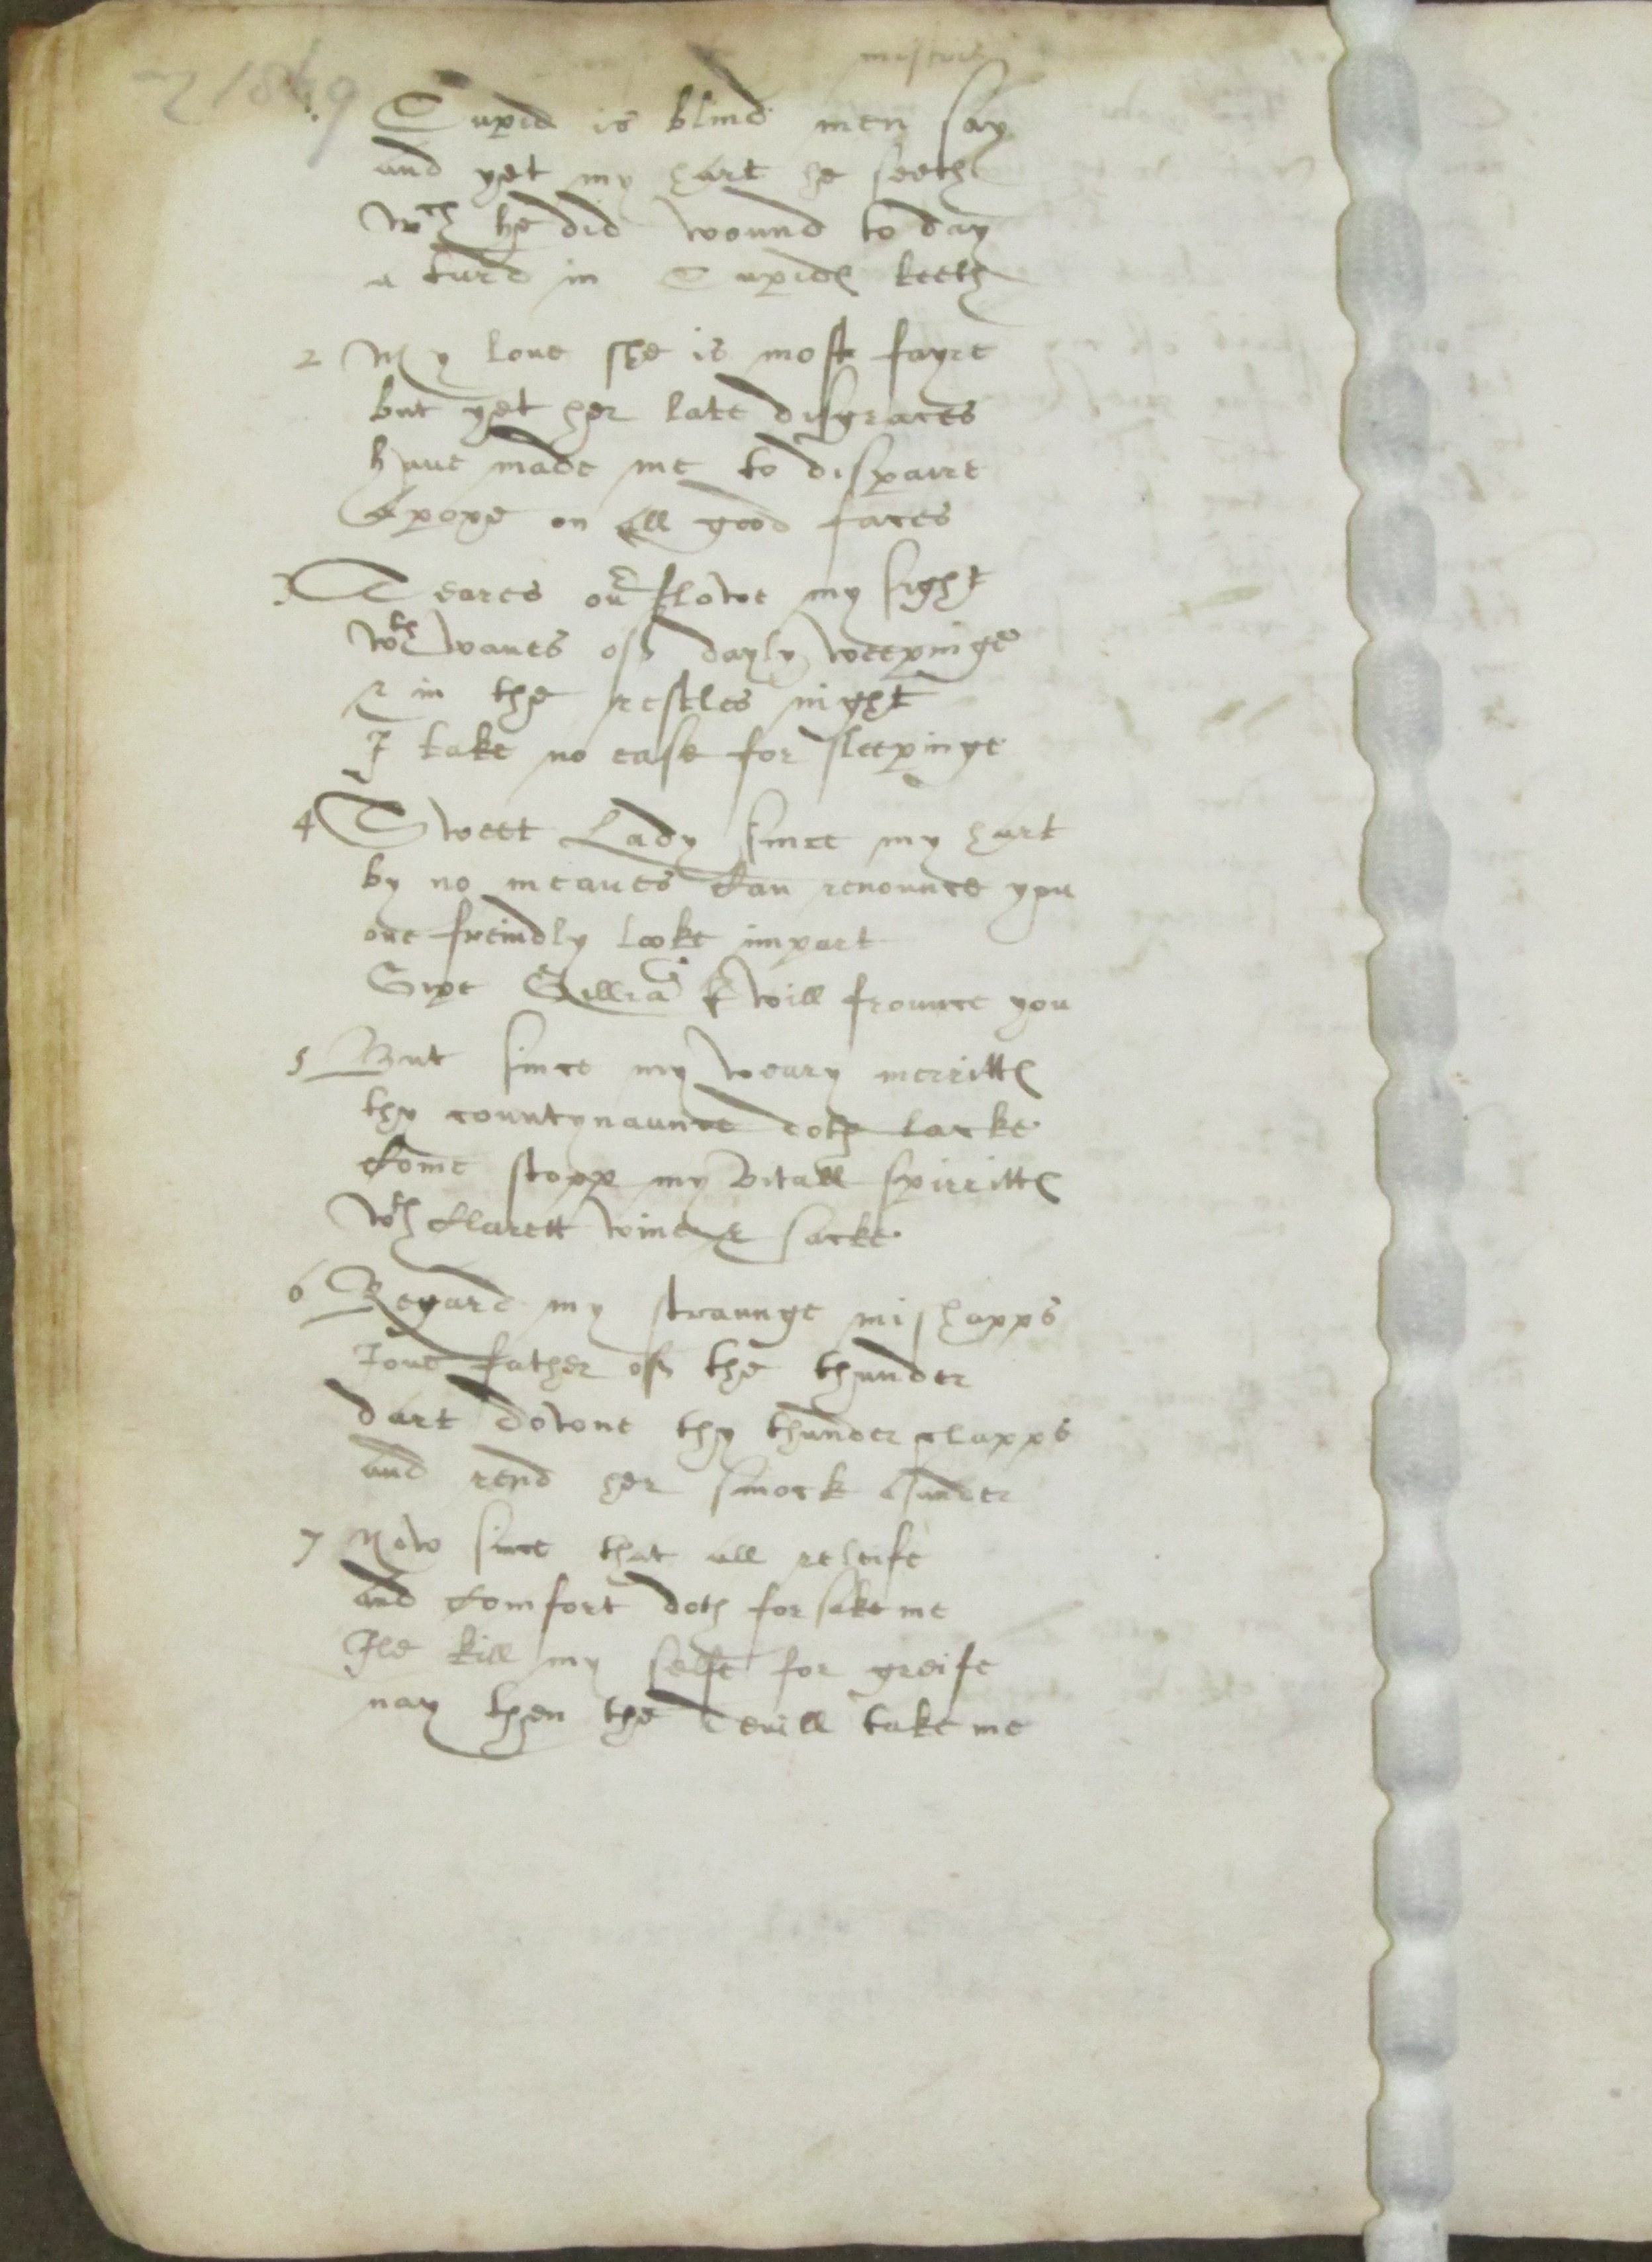 Cupid is blind men say
and yet my hart he seeth
wch he did wound to day
a turd in Cupids teeth
2 My loue she is most fayre
but yet her late disgraces
haue made me to dispaire
A poxe on all good faces
3 Teares ouerflowe my sight
wth waues off dayly weepinge
& in the restles night
I take no ease for sleepinge
4 Sweet Lady since my hart
by no meanes Can renounce you
one freindly looke impart
Gillia will frounce you
5 But since my weary merritts
thy countynaunce doth lacke
Come stopp my Vitall spirritts
wth Clarett wine & sacke
6 Regard my straunge mishapps
Ioue father off the thunder
dart downe thy thunder clapps
and rend her smock asunder
7 Now since that all releife
and Comfort doth forsake me
Ile kill my selfe for greife
nay then the deuill take me